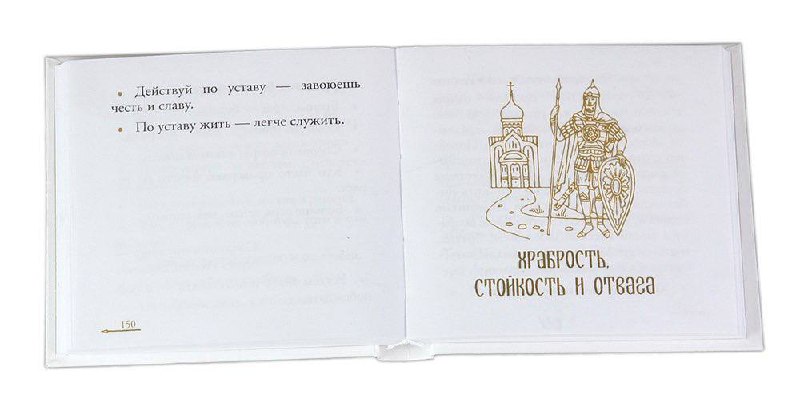 • Действуй по уставу — завоюешь
честь и славу.
• По уставу жить — легче служить.
150
ХРАБРОСТЬ,
СТОЙКОСТЬ И ОТВАГА